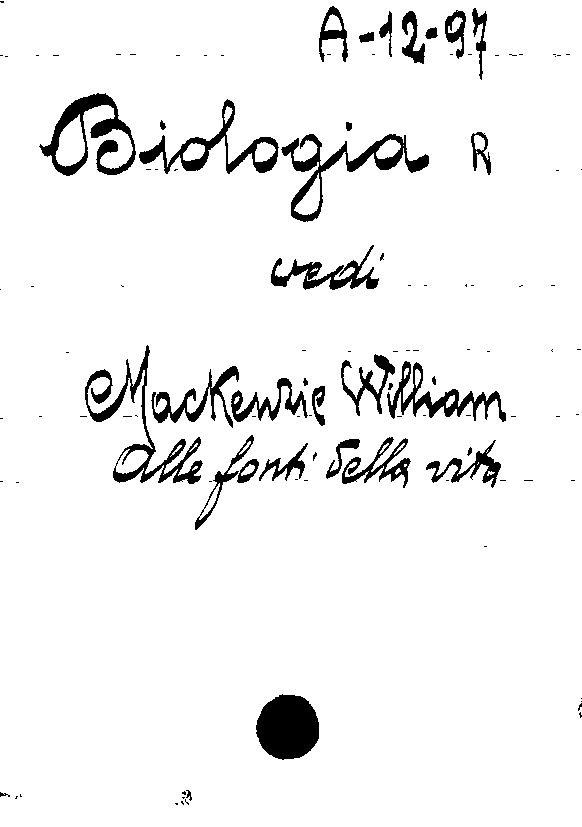 A-12-97
Biologia R
vedi
Mackenzie William
Alle fonti della vita